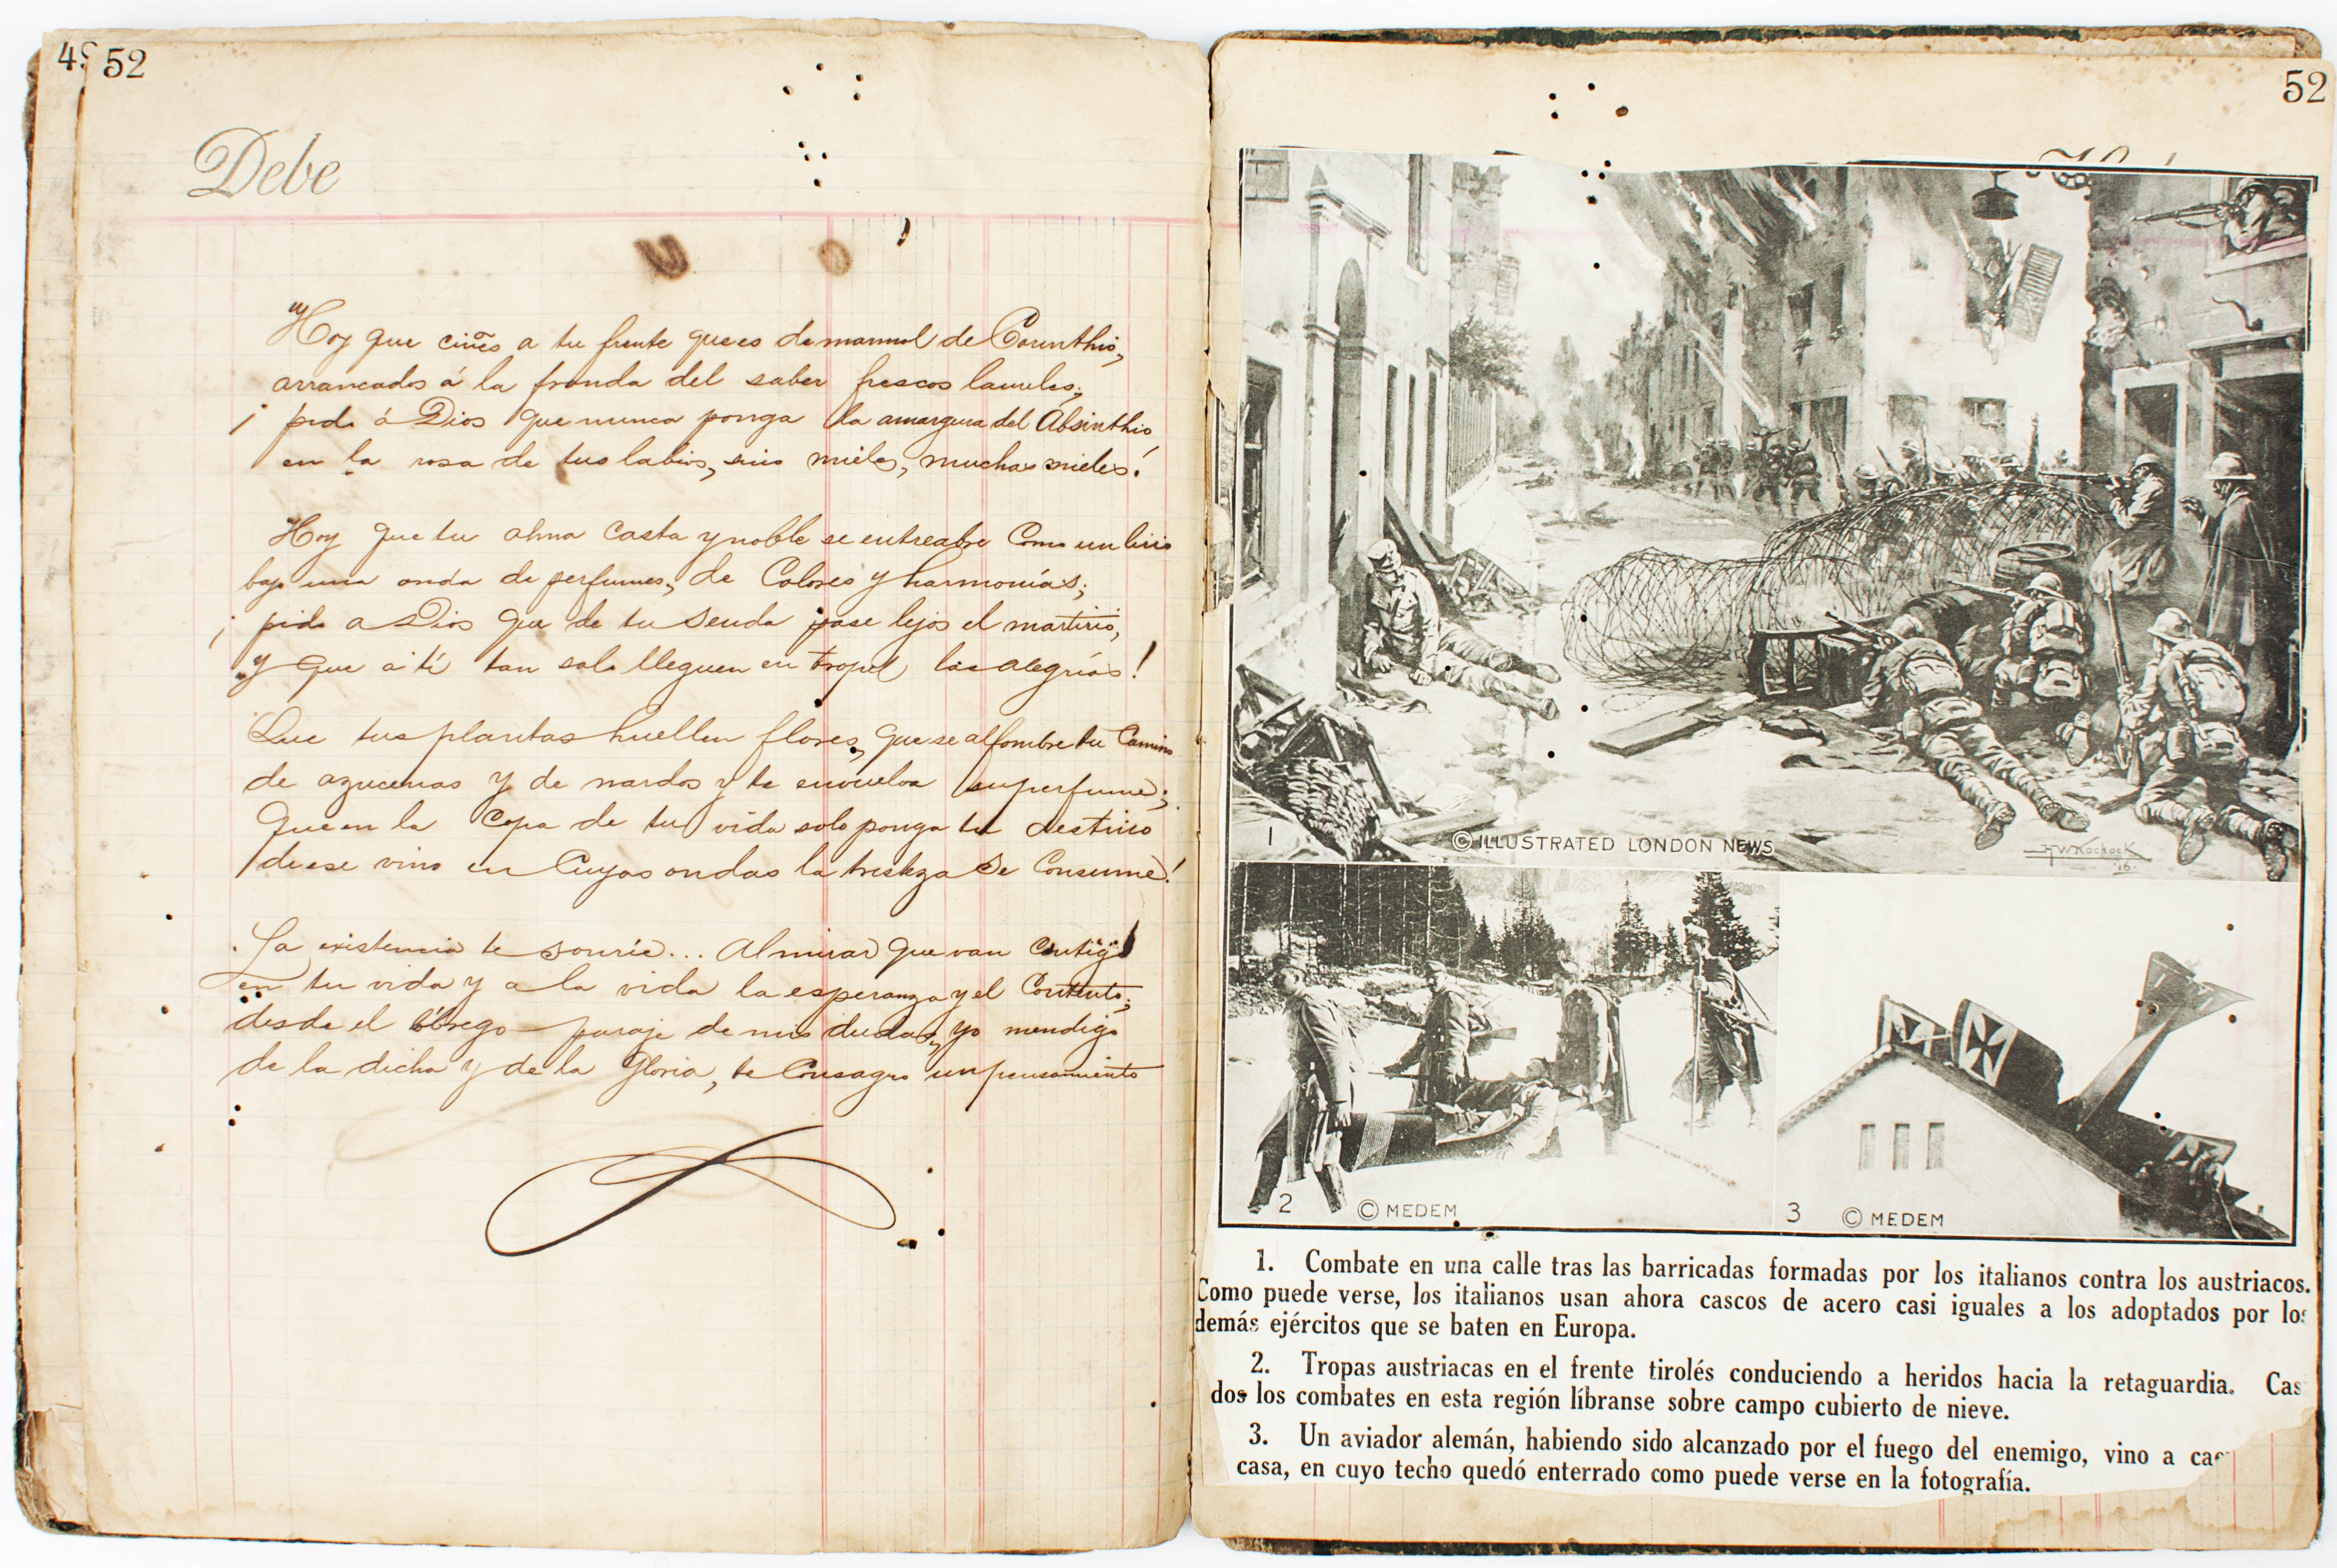 49
52
Debe
"Hoy que ciñes a tu frente que es de marmol de Corinthio,
arrancados á la fronda del saber frescos laureles;
¡ pido á Dios que nunca ponga la amargura del Absinthio
en la rosa de tus labios, sino mieles, muchas mieles!
Hoy que tu alma casta y noble se entreabre como un lirio
bajo una onda de perfumes, de Colores y harmonías;
¡ pido a Dios que de tu senda pase lejos el martirio,
y que a tí tan solo lleguen en tropel las alegrías!
Que tus plantas huellen flores, que se alfombre tu Camino
de azucenas y de nardos y te envuelva su perfume;
Que en la Copa de tu vida solo ponga tu destino
de ese vino en Cuyas ondas la tristeza se Consume!
La existencia te sonríe... Al mirar que van Contigo
en tu vida y a la vida la esperanza y el Contento;
desde el lóbrego paraje de mis dudas, yo mendigo
de la dicha y de la Gloria, te Consagro un pensamiento
52
1
© ILLUSTRATED LONDON NEWS
H.W. KOEKKOEK
'16.
2
© MEDEM
3
© MEDEM
1. Combate en una calle tras las barricadas formadas por los italianos contra los austriacos.
Como puede verse, los italianos usan ahora cascos de acero casi iguales a los adoptados por los
demás ejércitos que se baten en Europa.
2. Tropas austriacas en el frente tirolés conduciendo a heridos hacia la retaguardia. Cas
dos los combates en esta región líbranse sobre campo cubierto de nieve.
3. Un aviador alemán, habiendo sido alcanzado por el fuego del enemigo, vino a cae
casa, en cuyo techo quedó enterrado como puede verse en la fotografía.